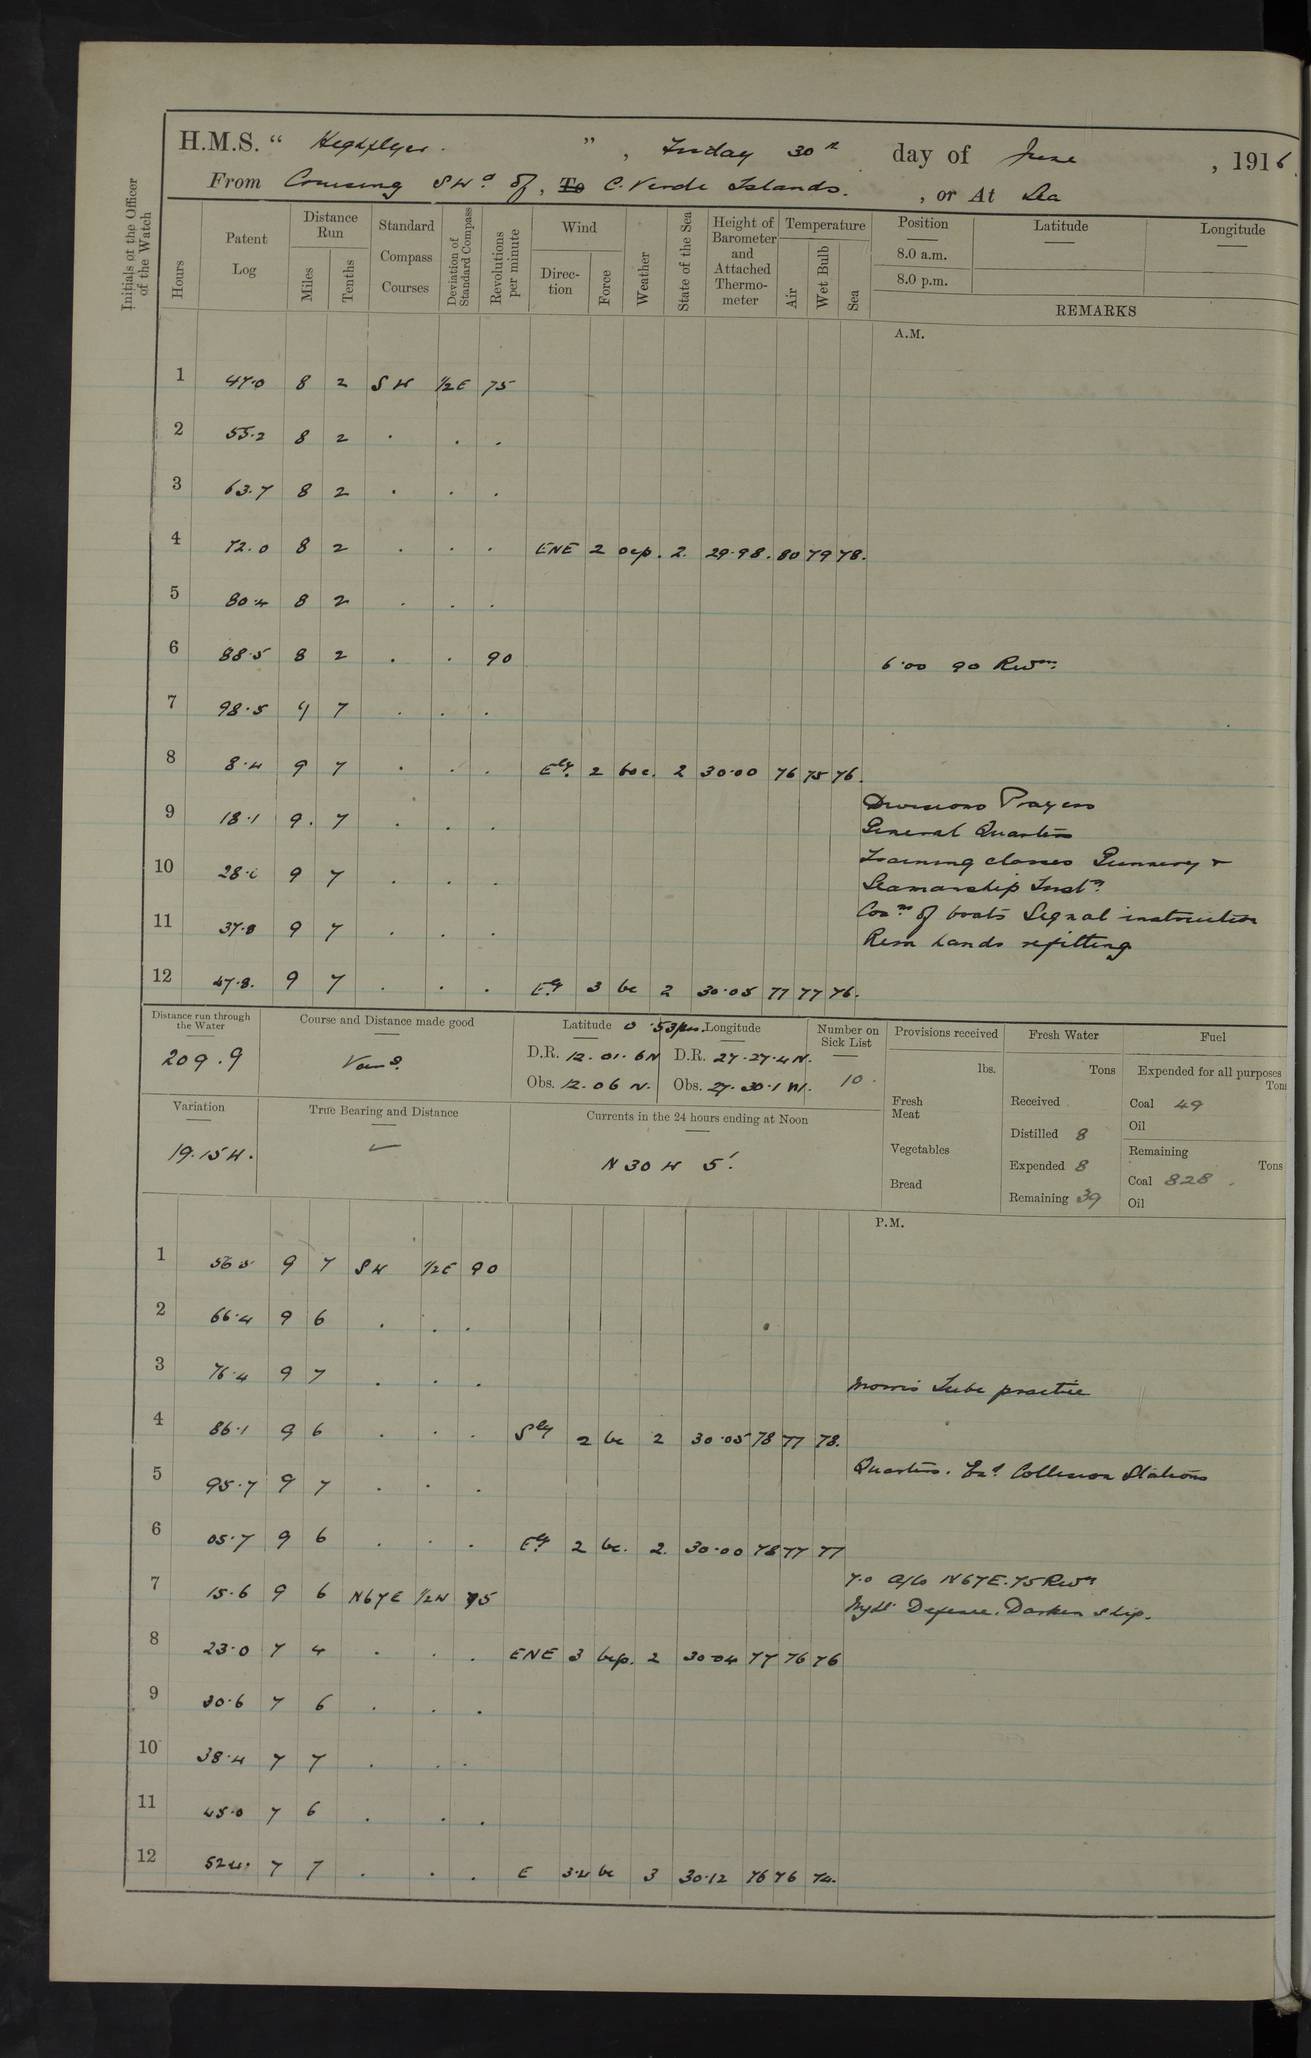 H.M.S. " Highflyer. " , Friday 30th day of June , 1916.
From Cruising SWd of, To C. Verde Islands. , or At Sea
Initials of the Officer of the Watch
Hours
Patent Log
Distance Run
Miles
Tenths
Standard Compass Courses
Deviation of Standard Compass
Revolutions per minute
Wind
Direction
Force
Weather
State of the Sea
Height of Barometer and Attached Thermometer
Temperature
Air
Wet Bulb
Sea
Position
Latitude
Longitude
8.0 a.m.
8.0 p.m.
REMARKS
A.M.
1 47.0 8 2 SW ½E 75
2 55.2 8 2 . . .
3 63.7 8 2 . . .
4 72.0 8 2 . . . ENE 2 ocp. 2. 29.98. 80 79 78.
5 80.4 8 2 . . .
6 88.5 8 2 . . 90 6.00 90 Revns.
7 98.5 9 7 . . .
8 8.4 9 7 . . . Ely. 2 boc. 2 30.00 76 75 76.
Divisions Prayers
9 18.1 9. 7 . . .
General Quarters
Training classes Gunnery &
10 28.0 9 7 . . .
Seamanship Instn.
Coxns of boats Signal instruction
11 37.8 9 7 . . .
Rem hands refitting
12 47.8. 9 7 . . . Ely 3 bc 2 30.05 77 77 76.
Distance run through the Water
209.9
Course and Distance made good
Vars.
Latitude Longitude
D.R. 12.01.6N D.R. 27.27.4W.
Obs. 12.06 N. Obs. 27.30.1 W.
Number on Sick List
10.
Provisions received
lbs.
Fresh Meat
Vegetables
Bread
Fresh Water
Tons
Received
Distilled 8
Expended 8
Remaining 39
Fuel
Expended for all purposes
Tons
Coal 49
Oil
Remaining
Tons
Coal 828.
Oil
Variation
19.15W.
True Bearing and Distance
Currents in the 24 hours ending at Noon
N 30 W 5'.
P.M.
1 56.5 9 7 SW ½E 90
2 66.4 9 6 . . .
3 76.4 9 7 . . .
Morris Tube practice
4 86.1 9 6 . . . Sly 2 bc 2 30.05 78 77 78.
Quarters. Exd Collision Stations
5 95.7 9 7 . . .
6 05.7 9 6 . . . Ely 2 bc. 2. 30.00 78 77 77
7.0 a/c N67E. 75 Revns
7 15.6 9 6 N67E ½W 75
Night Defence. Darken ship.
8 23.0 7 4 . . . ENE 3 bcp. 2 30.04 77 76 76
9 30.6 7 6 . . .
10 38.4 7 7 . . .
11 45.0 7 6 . . .
12 52.4. 7 7 . . . E 3.4 bc 3 30.12 76 76 74.